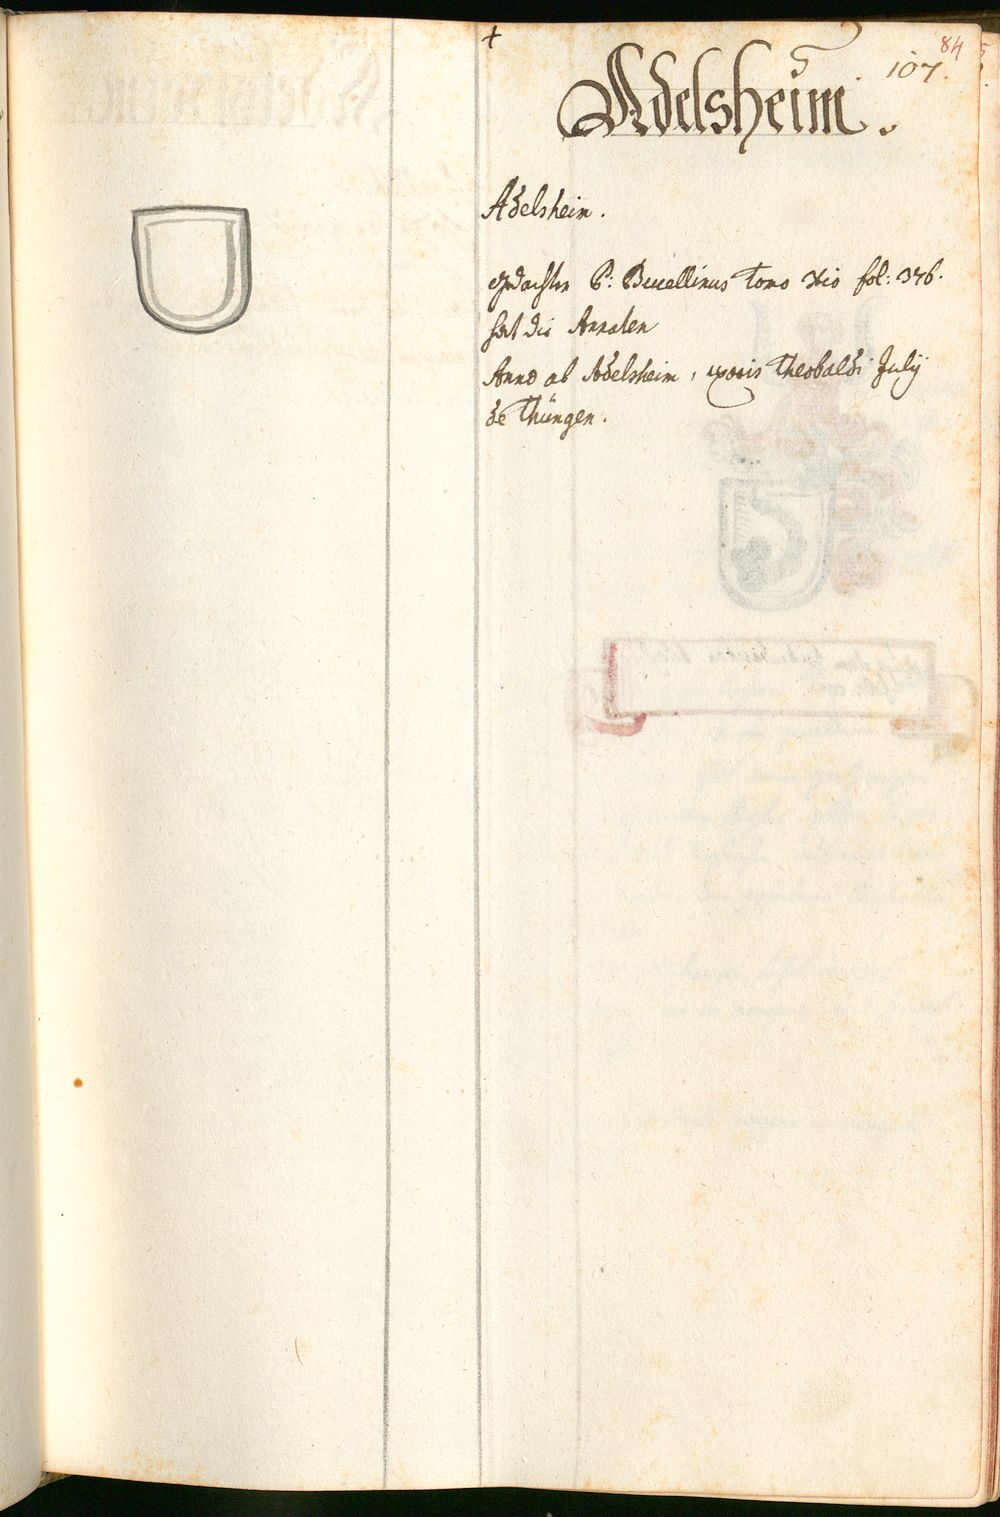 +
84
107.
Adelsheim.
Adelsheim.
gedachter P: Bucellinus Tomo fol: 376.
hat die Annalen
Anno ab Adelsheim, uxoris Theobaldi Julij
de Thüngen.